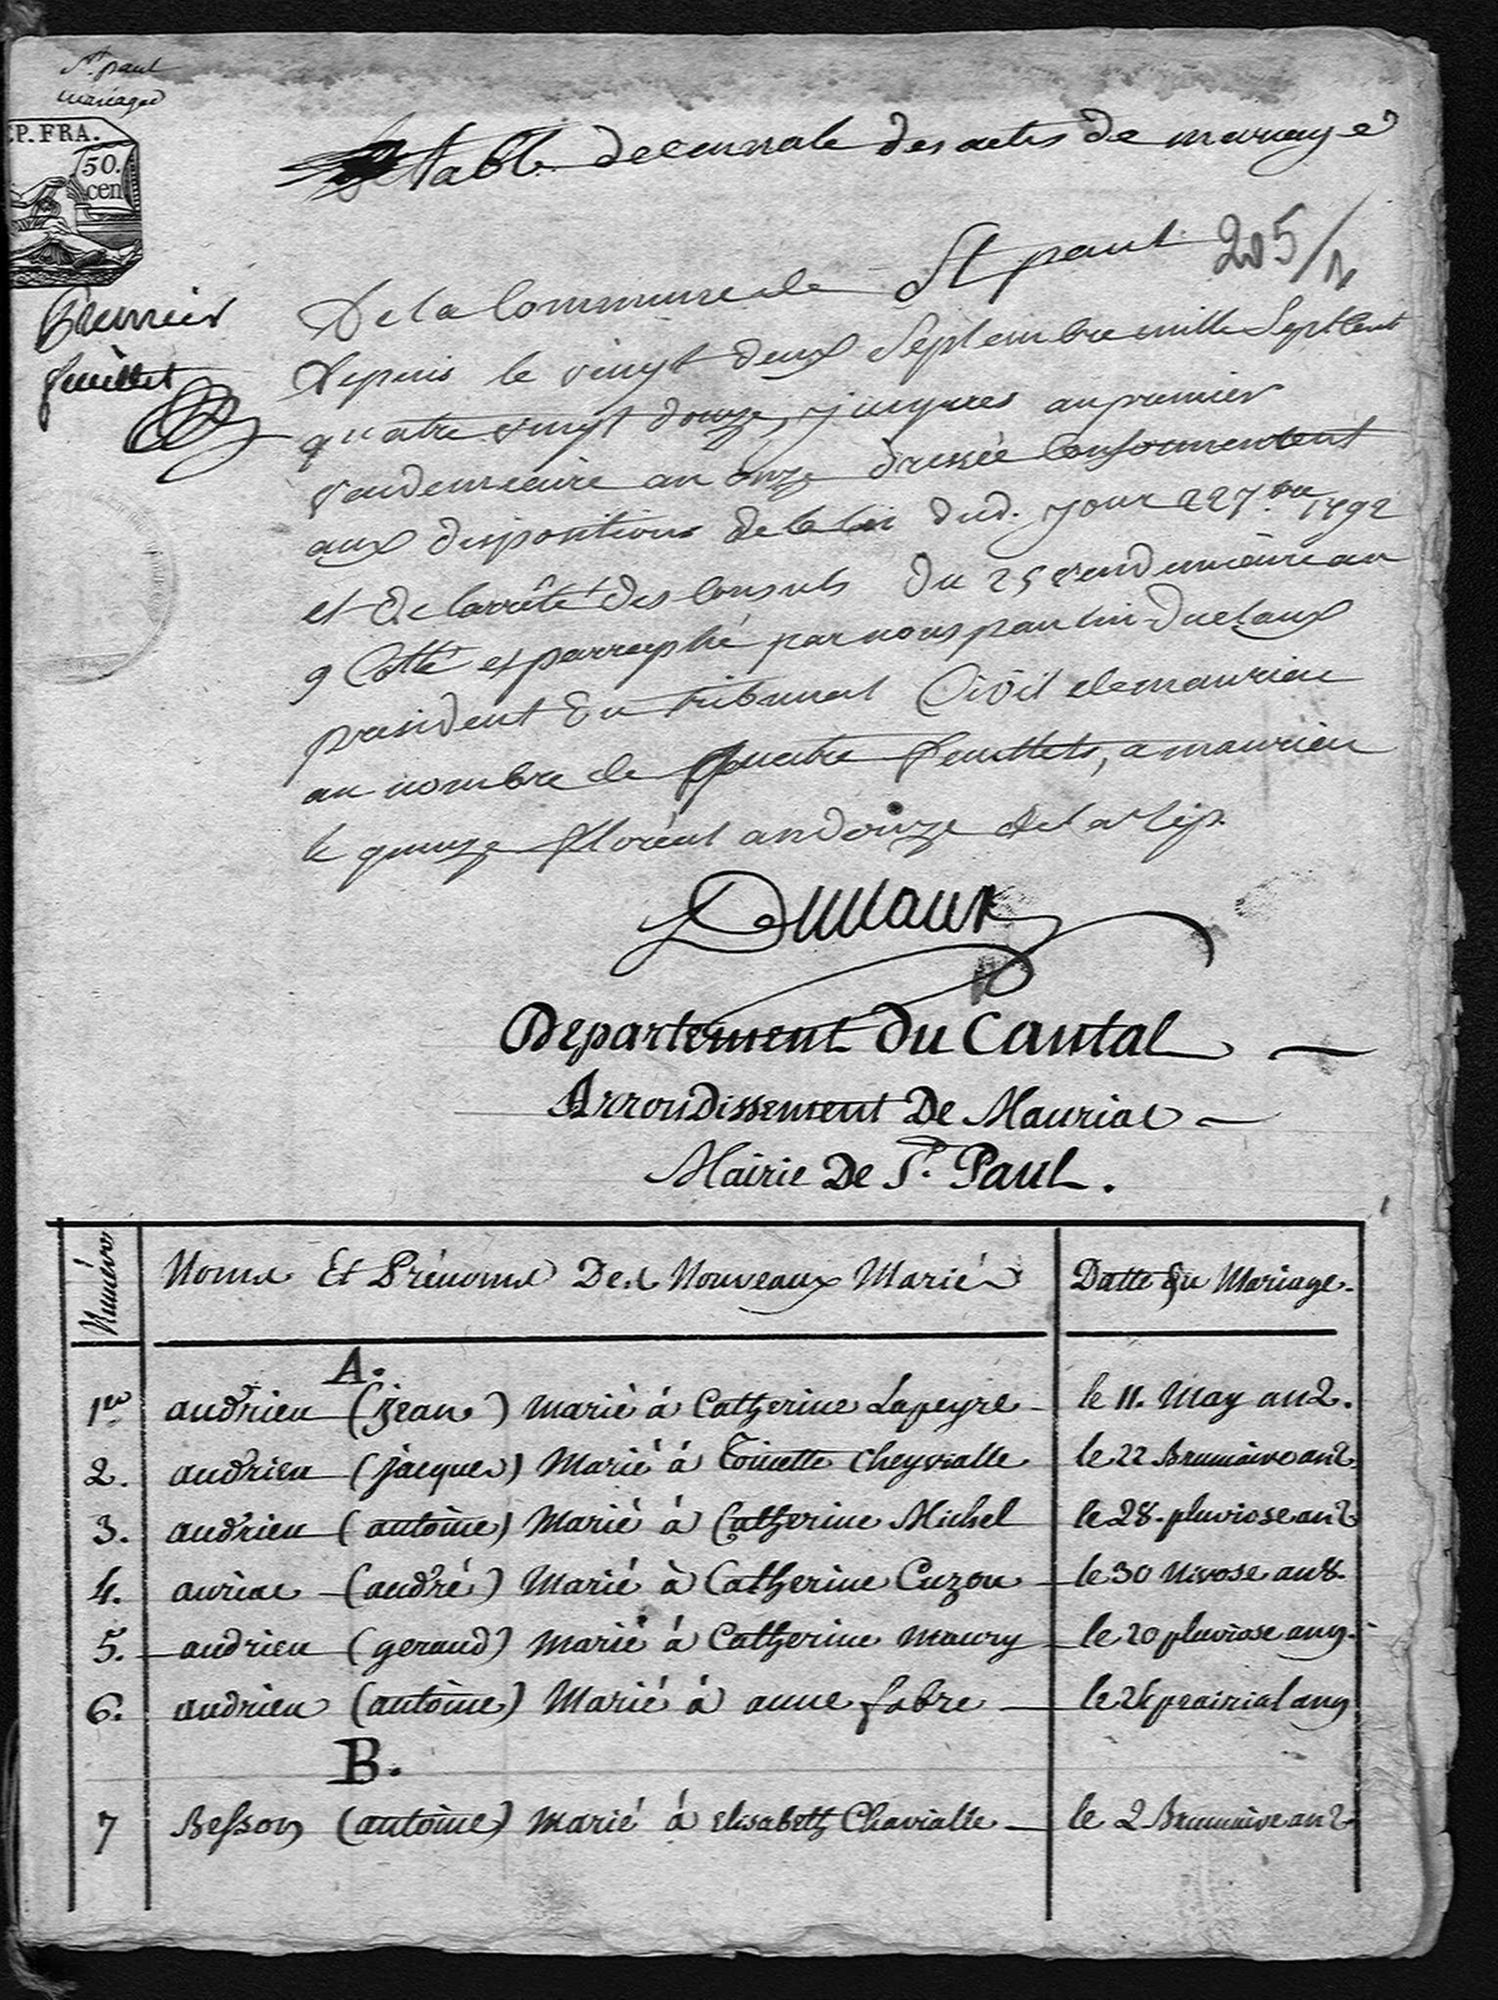 St. paul
mariages
EP. FRA.
50.
cen
table decennale des actes de mariage
205/1
Premier
feuillet
De la Commune de St paul
depuis le vingt deux Septembre mille Sept Cent
quatre vingt douze, jusques au premier
vendemiaire an onze dressée Conformement
aux dispositions de la loi dud. jour 22 7.bre 1792
et de l'arrêté des Consuls du 25 vendemiaire an
9 Cotté et parraphé par nous paulin Duclaux
president du tribunal Civil de mauriac
au nombre de quatre feuillets, a mauriac
le quinze floréal an douze de la rép.
Duclaux
Departement Du Cantal
Arrondissement De Mauriac
Mairie De St. Paul.
Numéros
Noms Et Prénoms Des Nouveaux Mariés
Datte du Mariage.
A.
1er andrieu (jean) Marié à Catherine Lapeyre le 11. May an 2.
2. andrieu (jacques) Marié á Toinette Cheyvialle le 22 Brumaire an 2.
3. andrieu (antoine) Marié á Catherine Michel le 28. pluviose an 2
4. auriac (andré) Marié à Catherine Cuzou le 30 Nivose an 8.
5. andrieu (geraud) Marié á Catherine Maury le 20 pluviose an 9.
6. andrieu (antoine) Marié á anne fabre le 24 prairial an 9
B.
7 Besson (antoine) Marié á Elisabeth Chavialle le 2 Brumaire an 2